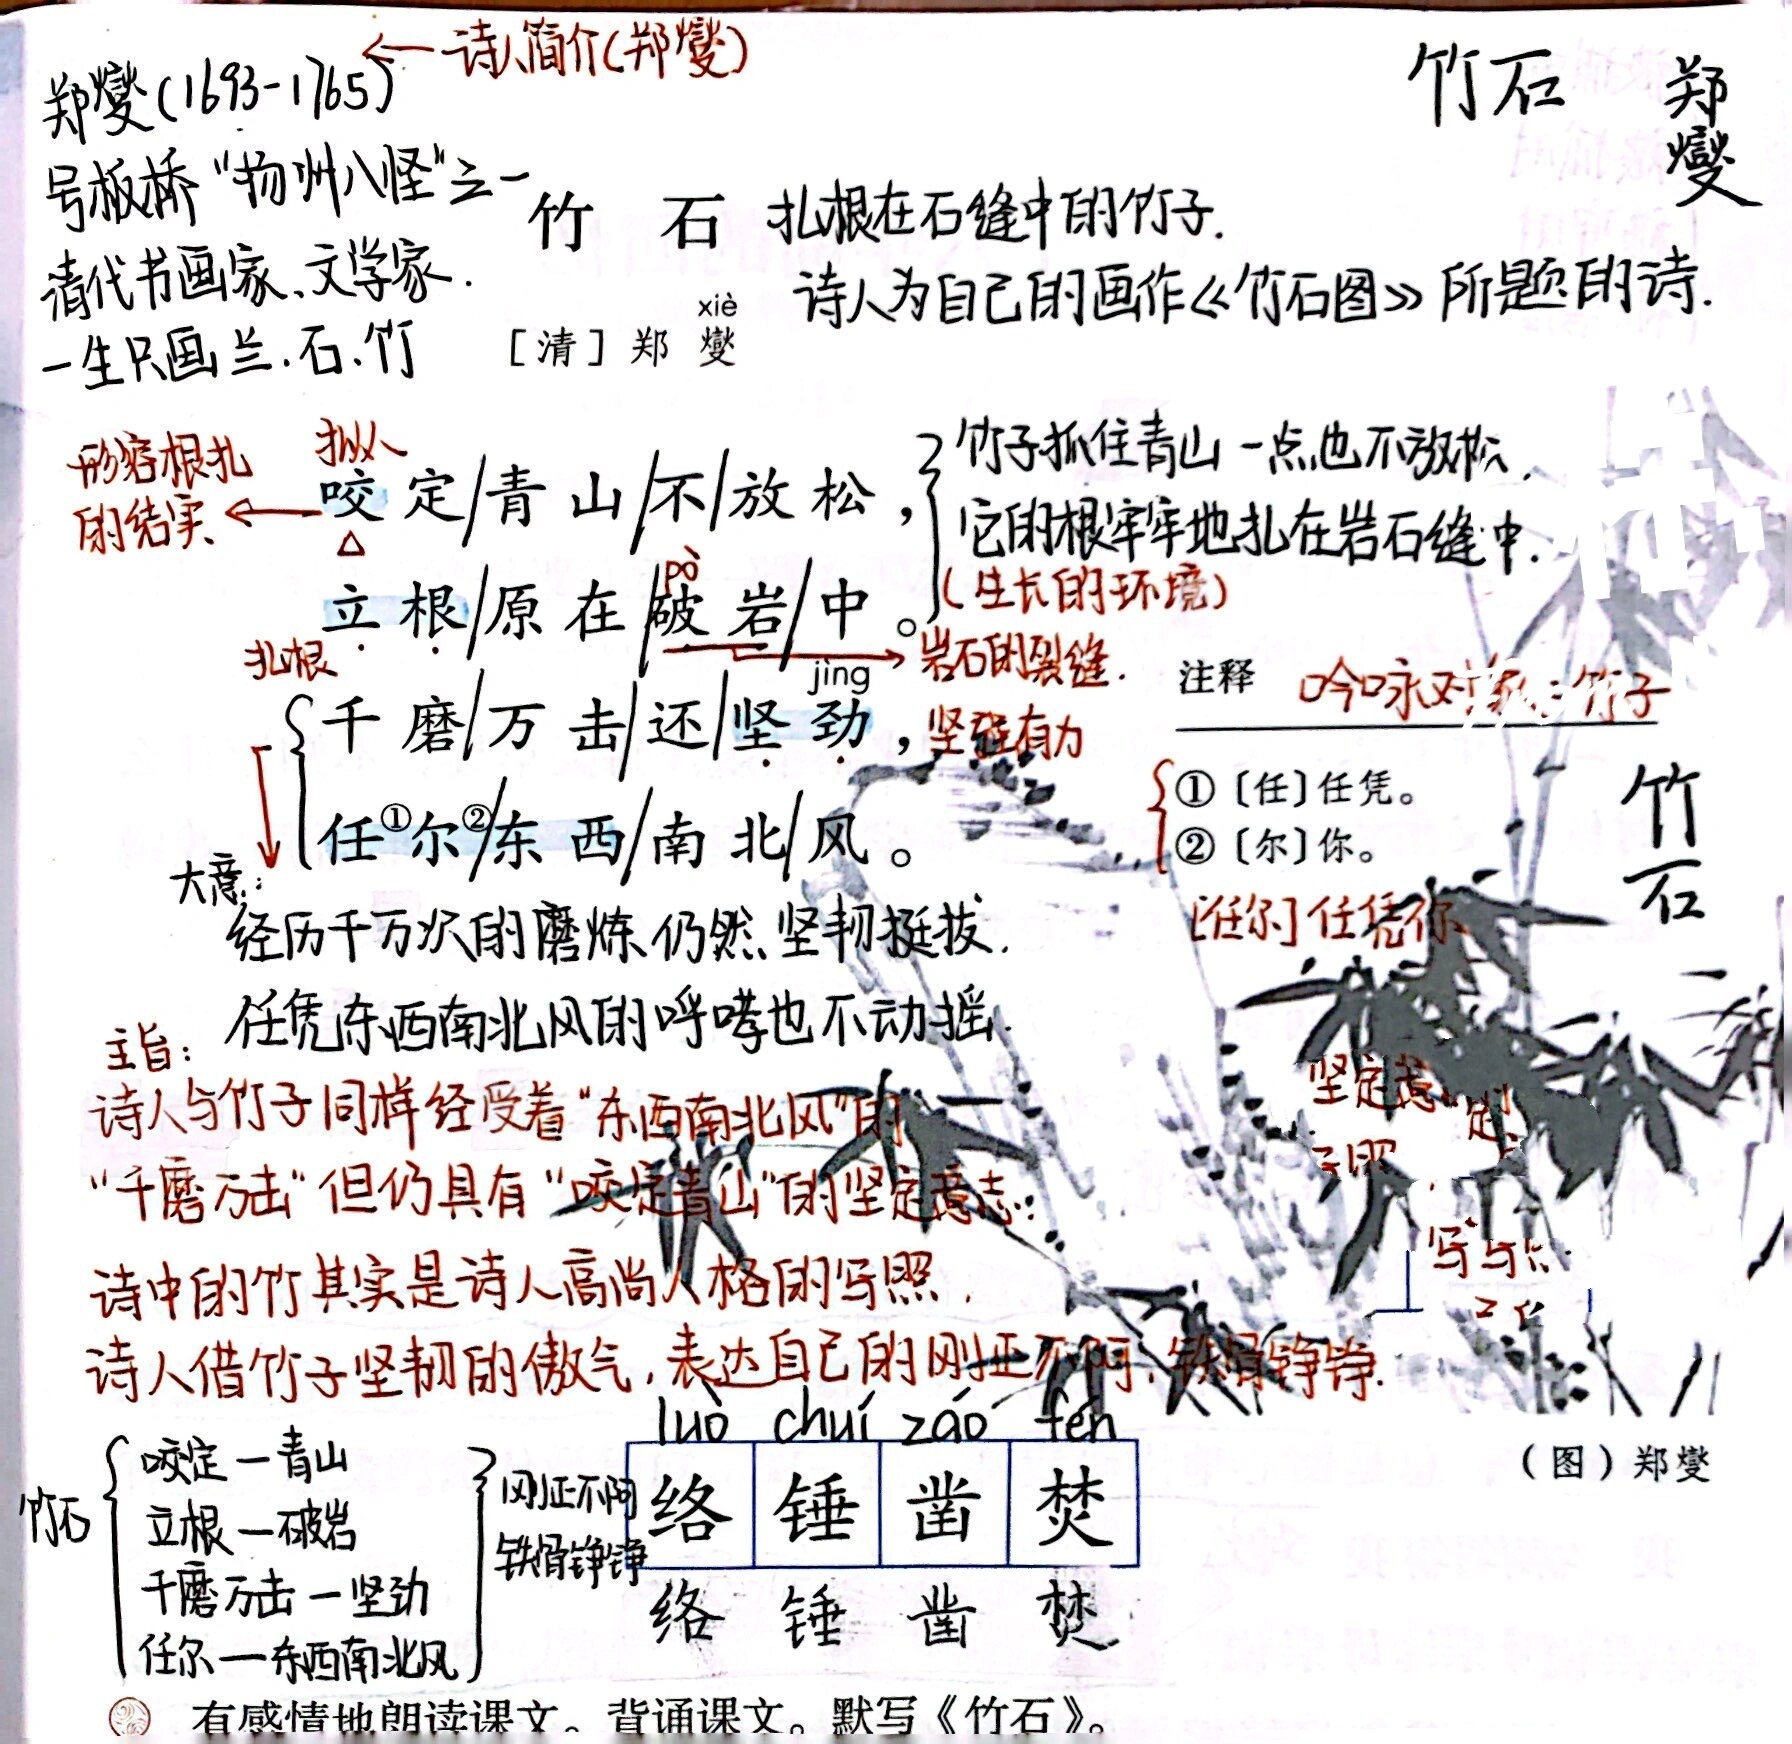 诗人简介(郑燮)
竹石 郑燮
郑燮(1693-1765)
号板桥"扬州八怪"之一
清代书画家、文学家.
一生只画兰.石.竹
竹 石
扎根在石缝中的竹子.
诗人为自己的画作《竹石图》所题的诗.
xiè
[清]郑 燮
形容根扎
的结实
拟人
咬定/青山/不/放松,
竹子抓住青山一点也不放松,
它的根牢牢地扎在岩石缝中.
(生长的环境)
pò
立根/原在/破岩/中。
扎根
岩石的裂缝.
jìng
千磨/万击/还/坚劲,
坚强有力
任①尔②/东西/南北/风。
注释
吟咏对象:竹子
①〔任〕任凭。
②〔尔〕你。
[任尔]任凭你
竹石
大意:
经历千万次的磨炼仍然坚韧挺拔.
任凭东西南北风的呼啸也不动摇.
主旨:
诗人与竹子同样经受着"东西南北风"的
"千磨万击"但仍具有"咬定青山"的坚定意志:
诗中的竹其实是诗人高尚人格的写照.
诗人借竹子坚韧的傲气,表达自己的刚正不阿,铁骨铮铮.
坚定意
写
竹石
咬定—青山
立根—破岩
千磨万击—坚劲
任尔—东西南北风
刚正不阿
铁骨铮铮
luò chuí záo fén
络 锤 凿 焚
络 锤 凿 焚
(图)郑燮
有感情地朗读课文。背诵课文。默写《竹石》。